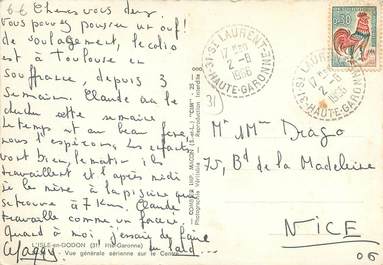 66 Chers vous deux,
vous pouvez pousser un ouf!
de soulagement, le colis
est à Toulouse en
souffrance, depuis 3
semaines. Claude va le
cette semaine
le temps est au beau fixe
nous l'espérons, les enfants
vont bien, le matin ils
travaillent et l'après midi
je les mène à la piscine qui se
trouve à 7 Km. Claude
travaille comme un forcené.
Quant à moi j'essaie de faire
au lard...
Maggy
L'ISLE-en-DODON (31 Hte-Garonne)
Vue générale aérienne sur le Centre
COMBIER IMP. MACON (S.-et-L.) "CIM"
Photographie Véritable - Reproduction Interdite
31 St LAURENT-L'ISLE-EN-
17H30
2-8
1966
HAUTE-GARONNE
31 St LAURENT
17H30
2-8
1966
HAUTE-GARONNE
0,30
31
Mr Mme Drago
75, Bd de la Madeleine
NICE
06